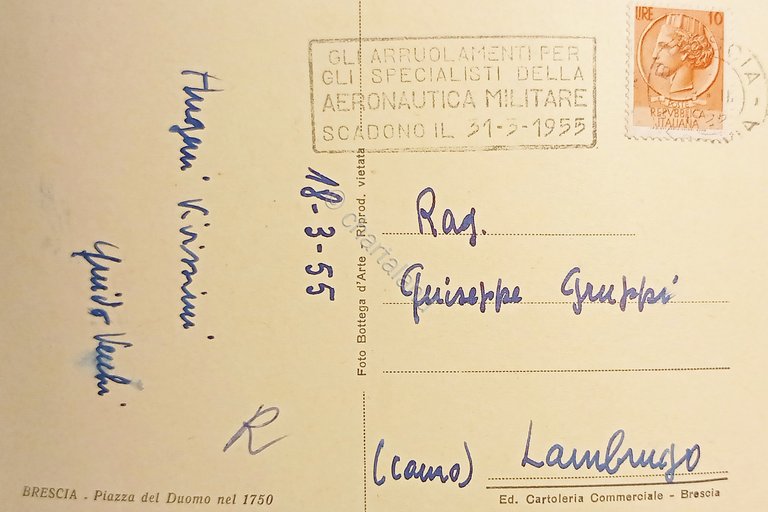 GLI ARRUOLAMENTI PER
GLI SPECIALISTI DELLA
AERONAUTICA MILITARE
SCADONO IL 31-3-1955
LIRE 10
REPVBBLICA
ITALIANA
Auguri Vivissimi
Guido Vecchi
18-3-55
Foto Bottega d'Arte - Riprod. vietata
Rag.
Guiseppe Gruppi
Lambrugo
R
BRESCIA - Piazza del Duomo nel 1750
Ed. Cartoleria Commerciale - Brescia